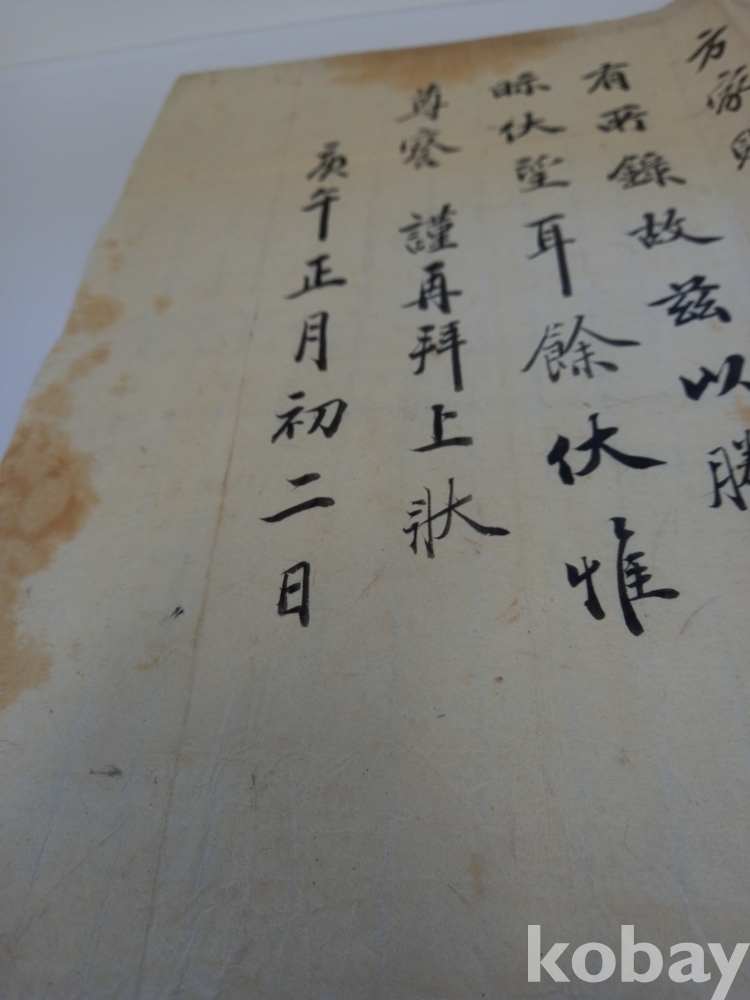 方
有所錄故茲以勝
眎伏望耳餘伏惟
尊察 謹再拜上狀
庚午正月初二日
kobay